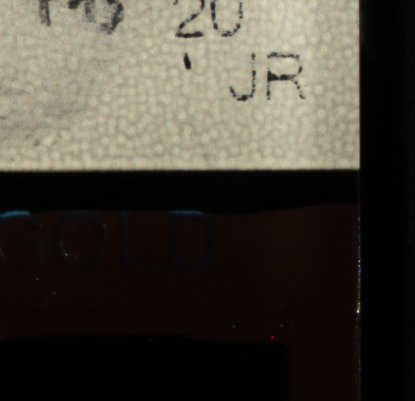 20
JR
GOLD